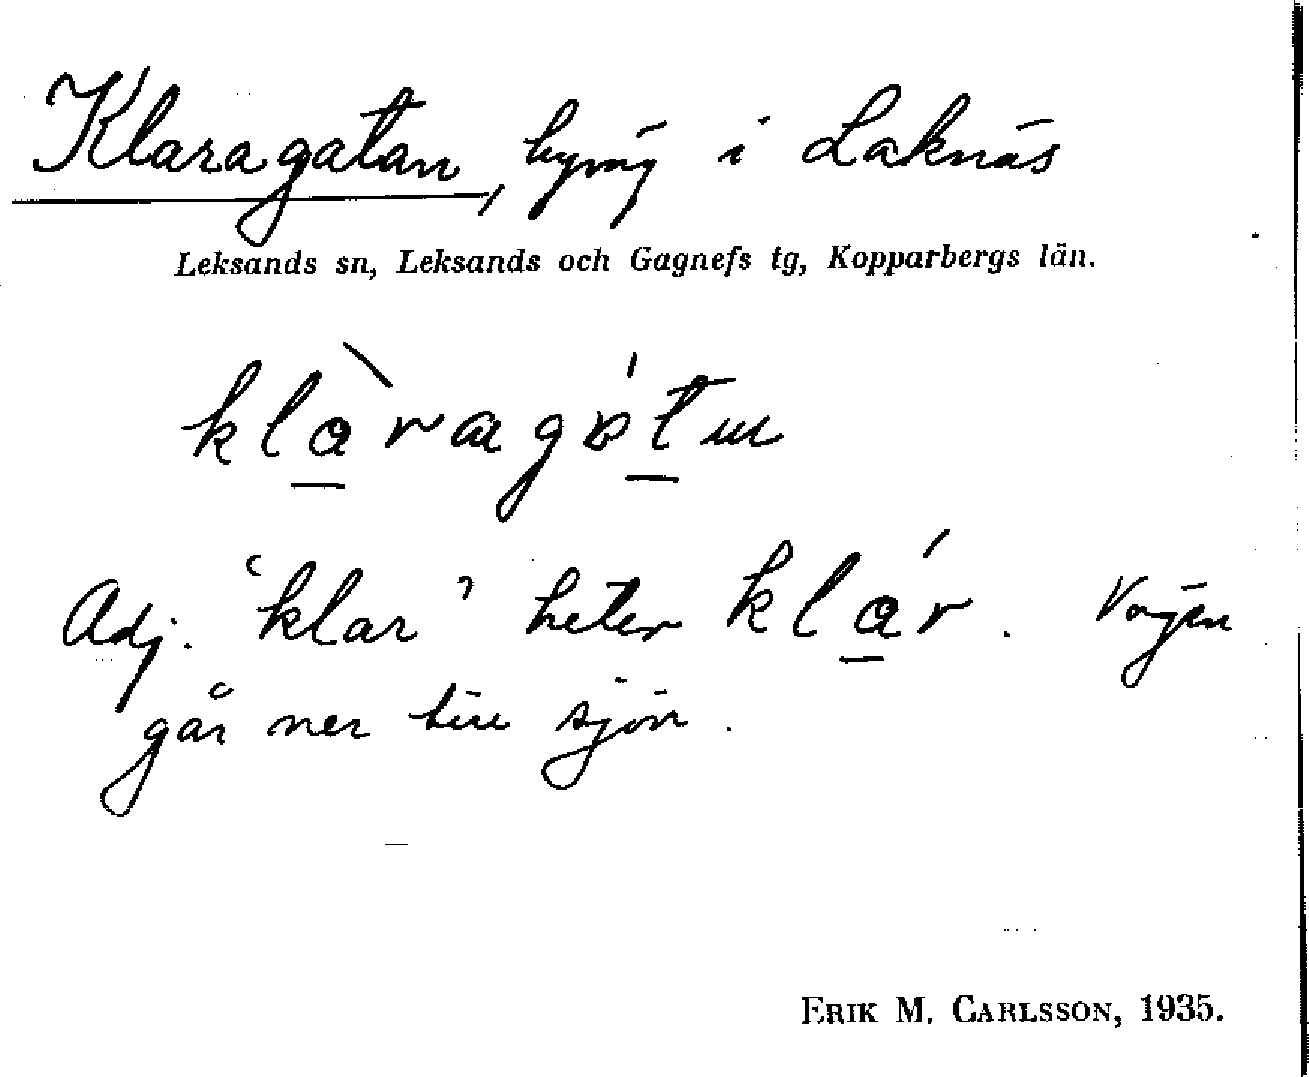 Klaragatan, byväg i Laknäs
Leksands sn, Leksands och Gagnefs tg, Kopparbergs län.
klàragɒ́tɯ
Adj. 'klar' heter klár. Vägen
går ner till sjön.
ERIK M. CARLSSON, 1935.